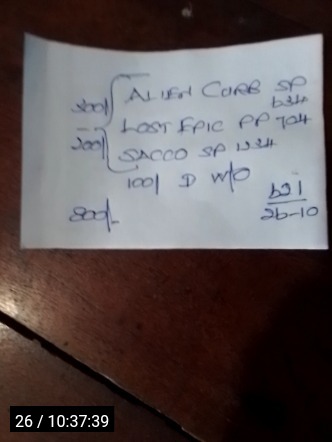 300/ ALIEN CURB SP
634
200/ LOST EPIC PP 704
SACCO SP 1234
100/ D W/O
800/- 621
26-10
26 / 10:37:39